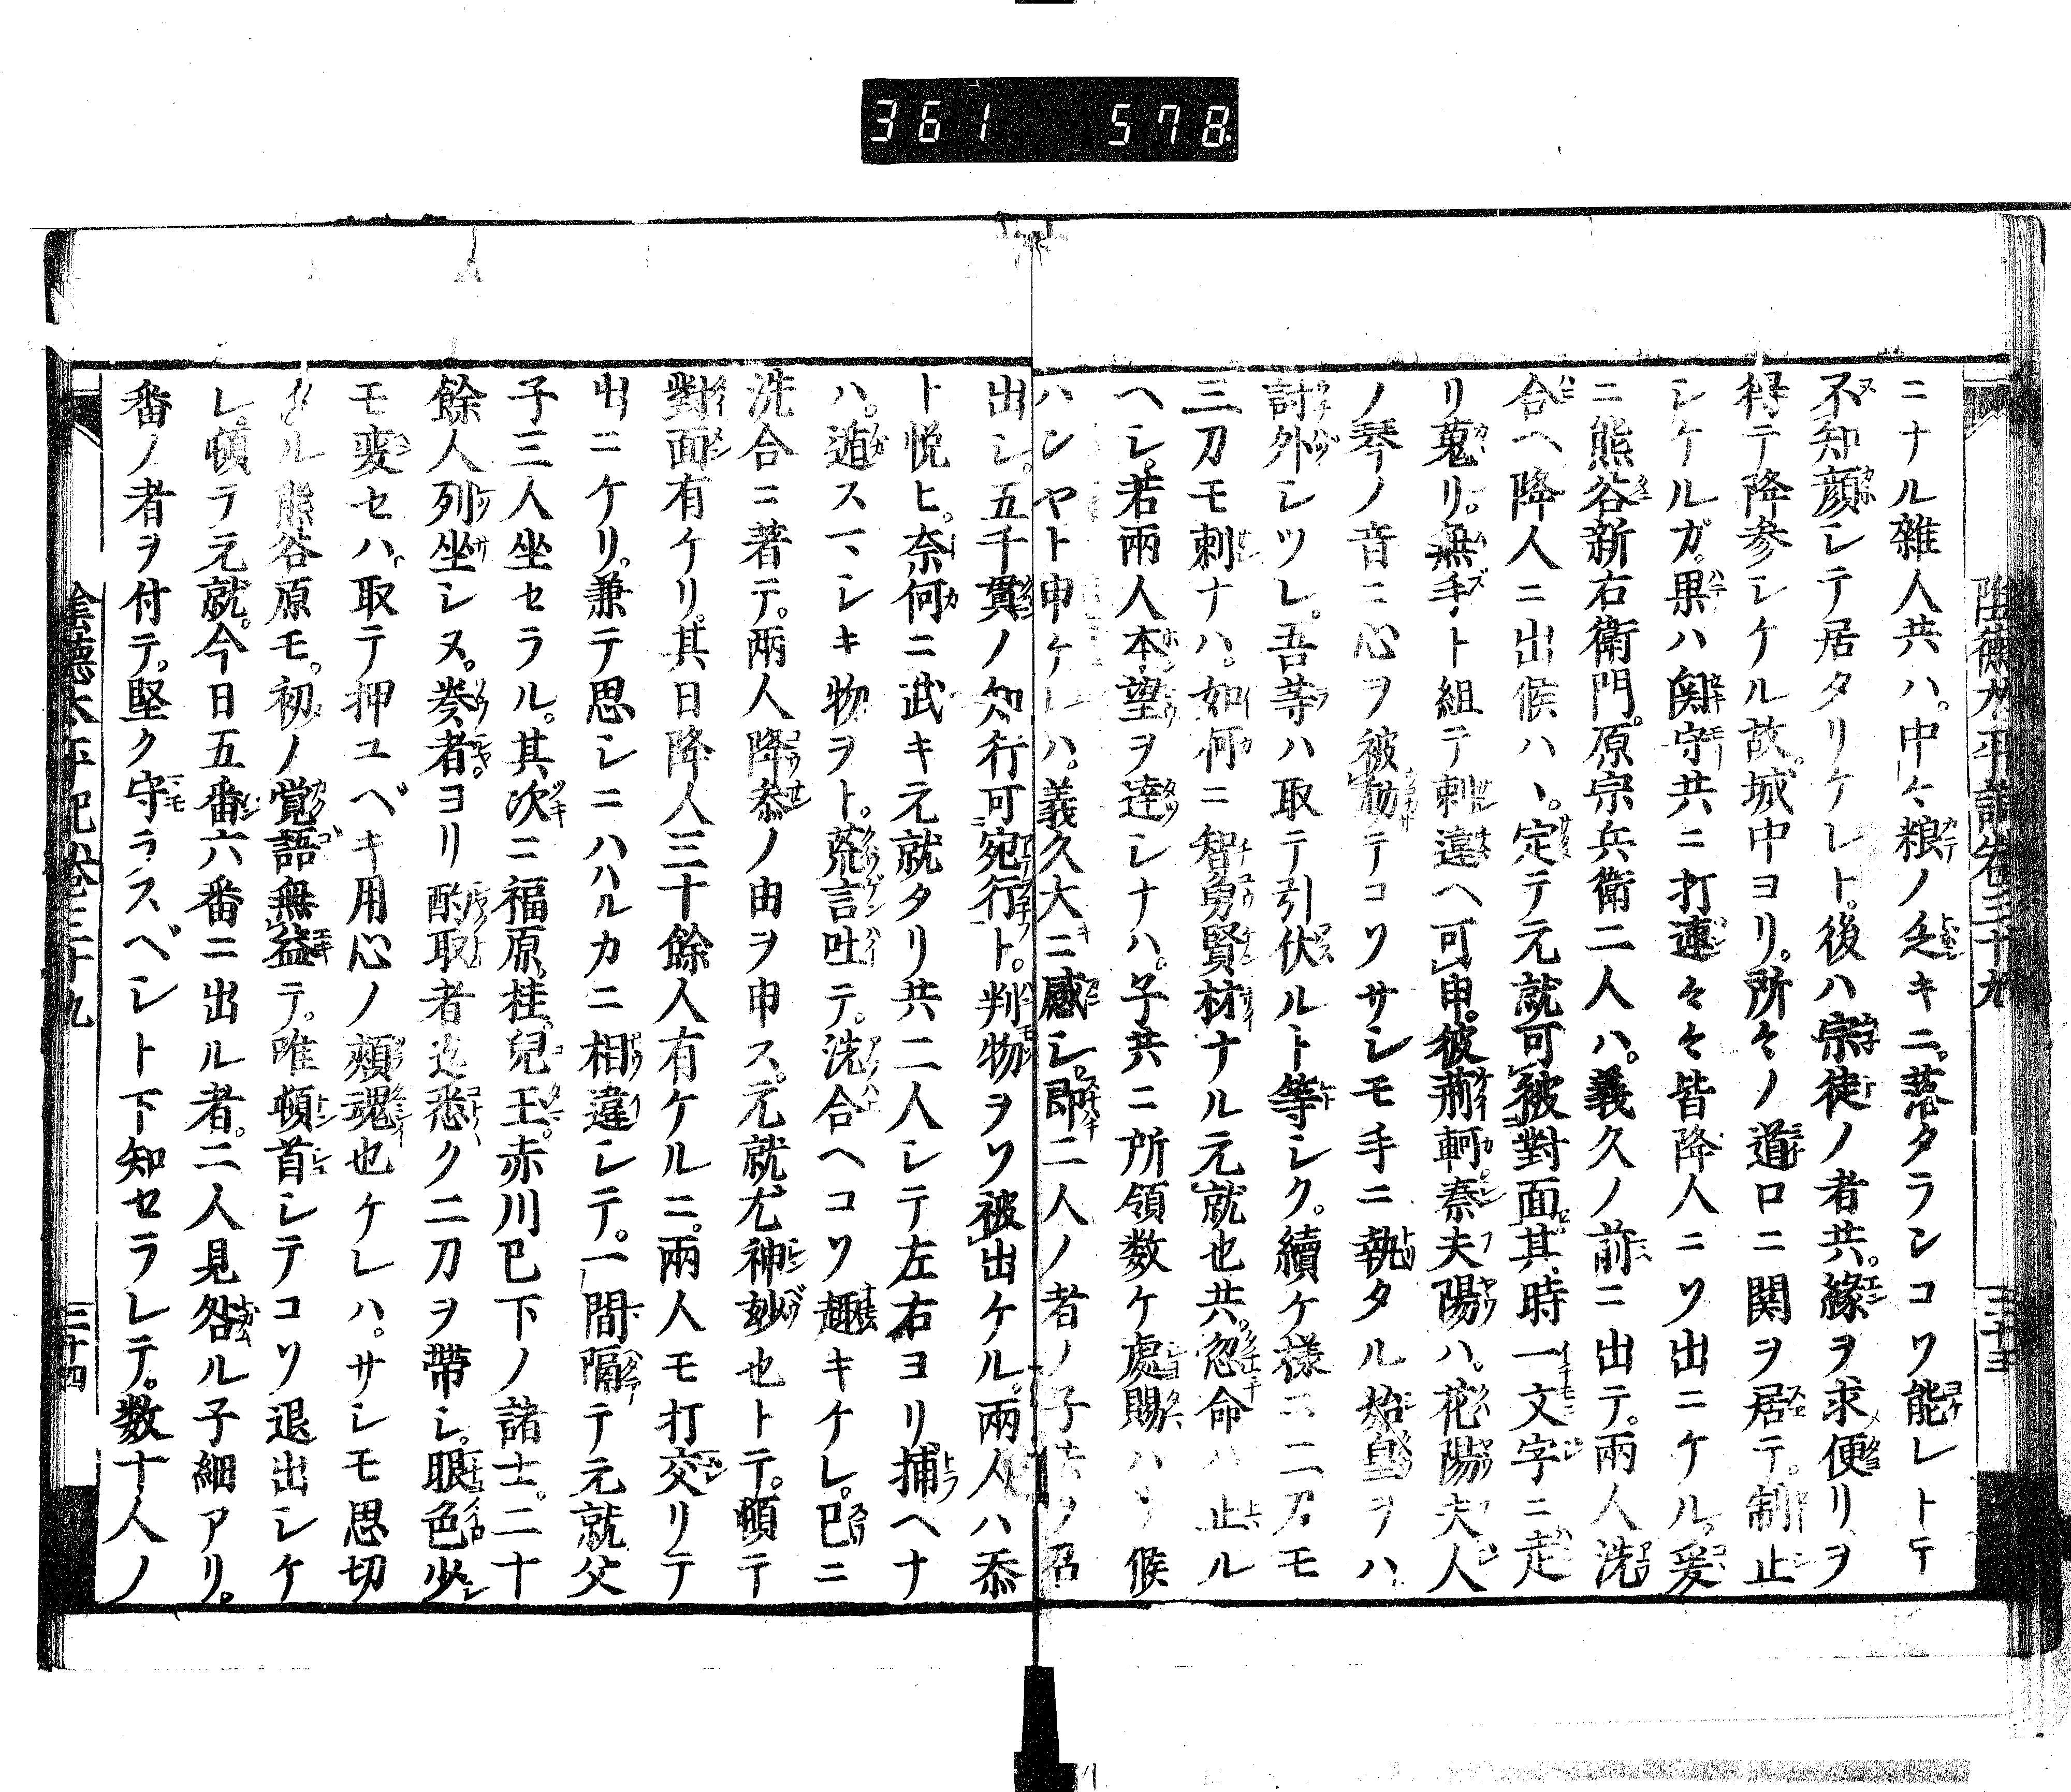 361 578
陰徳太平記巻三十九 二十三
ニナル雜人共ハ。中々粮ノ乏キニ。落タランコソ能レトテ
不知顔シテ居タリケレト。後ハ宗徒ノ者共。縁ヲ求便リヲ
得テ降参シケル故。城中ヨリ。所々ノ道口ニ関ヲ居テ。制止
シケルガ。果ハ関守共ニ打連々々皆降人ニソ出ニケル。爰
ニ熊谷新右衛門。原宗兵衛二人ハ。義久ノ前ニ出テ。兩人洗
合ヘ降人ニ出候ハヽ。定テ元就可被對面其時一文字ニ走
リ蒐リ。無手ト組テ刺違ヘ可申。彼荊軻秦夫陽ハ。花陽夫人
ノ琴ノ音ニ心ヲ被動テコソサシモ手ニ執タル始皇ヲハ
討外シツレ。吾等ハ取テ引伏ルト等シク。續ケ様ニ二刀モ
三刀モ刺ナハ。如何ニ智勇賢材ナル元就也共。忽命ハ止ル
ヘシ。若兩人本望ヲ達シナハ。子共ニ所領数ケ處賜ハリ候
ハンヤト申ケレハ。義久大ニ感シ。即二人ノ者ノ子共ヲ召
出シ。五千貫ノ知行可宛行ト。判物ヲソ被出ケル。兩人ハ忝
ト悦ヒ。奈何ニ武キ元就タリ共二人シテ左右ヨリ捕ヘナ
ハ。遁スマシキ物ヲト。荒言吐テ。洗合ヘコソ趣キケレ。已ニ
洗合ニ著テ。兩人降参ノ由ヲ申ス。元就尤神妙也トテ。頓テ
對面有ケリ。其日降人三十餘人有ケルニ。兩人モ打交リテ
出ニケリ。兼テ思シニハハルカニ相違シテ。一間隔テ元就父
子三人坐セラル。其次ニ福原。桂。兒玉。赤川已下ノ諸士。二十
餘人列坐シヌ。奏者ヨリ酌取者迄悉ク二刀ヲ帶シ。眼色少
モ変セハ。取テ押ユベキ用心ノ頰魂也ケレハ。サシモ思切
タル熊谷原モ。初ノ覚語無益テ。唯頓首シテコソ退出シケ
レ。頓テ元就。今日五番六番ニ出ル者。二人見咎ル子細アリ。
番ノ者ヲ付テ。堅ク守ラスベシト下知セラレテ。数十人ノ
陰徳太平記巻三十九 二十四